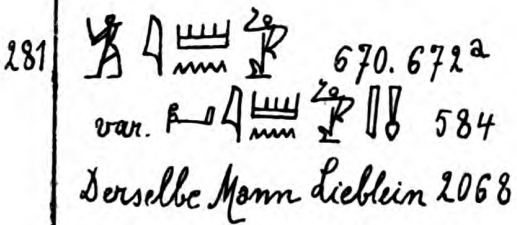 281 𓇋𓏠𓈖 670. 672ª
var. 𓇋𓏠𓈖 584
Derselbe Mann Lieblein 2068